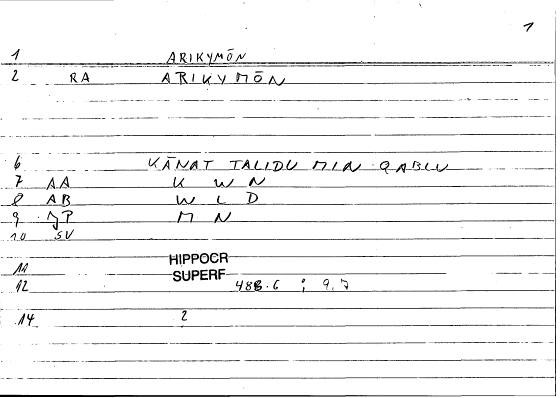 1
1 ARIKYMŌN
2 RA ARIKYMŌN
6 KĀNAT TALIDU MIN QABLU
7 AA K W N
8 AB W L D
9 JP M N
10 SV
11 HIPPOCR
SUPERF
12 488.6 ; 9.7
14 2